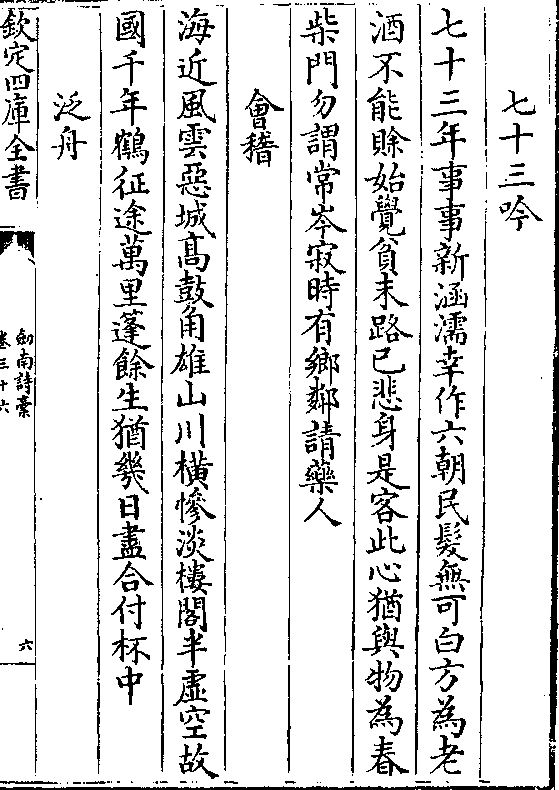 七十三吟
七十三年事事新涵濡幸作六朝民髮無可白方為老
酒不能賒始覺貧末路已悲身是客此心猶與物為春
柴門勿謂常岑寂時有鄉鄰請藥人
會稽
海近風雲惡城髙鼓角雄山川橫慘淡樓閣半虛空故
國千年鶴征途萬里蓬餘生猶幾日盡合付杯中
泛舟
欽定四庫全書
劍南詩稾
卷三十六
六